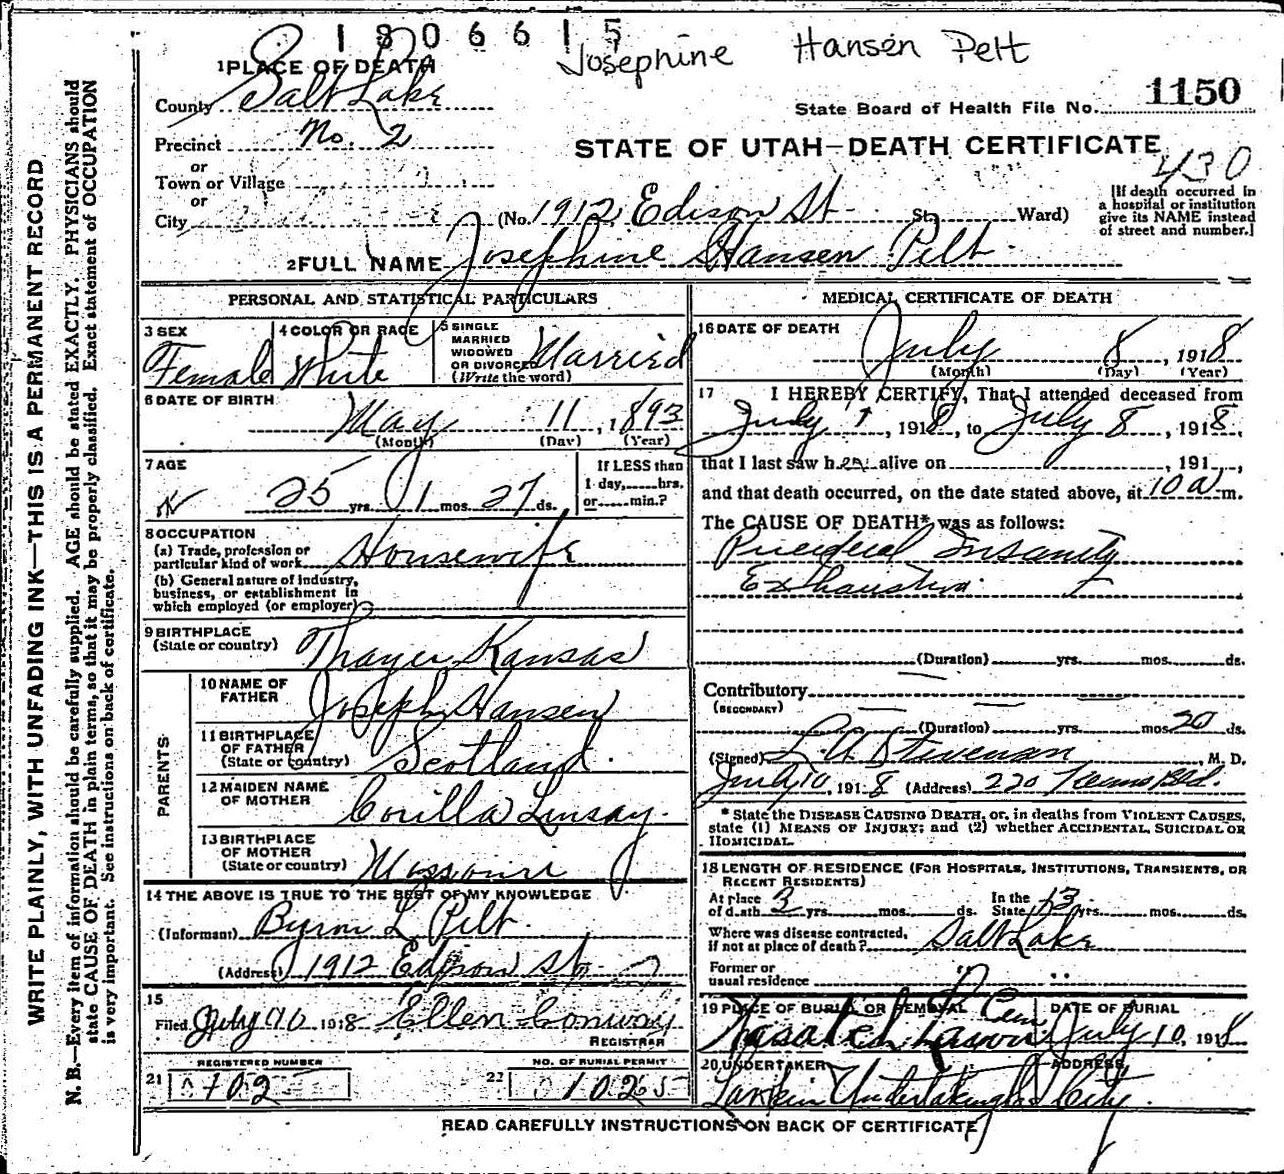 1806615
Josephine Hansen Pelt
1 PLACE OF DEATH
County Salt Lake
State Board of Health File No. 1150
Precinct No. 2
STATE OF UTAH—DEATH CERTIFICATE
430
or
Town or Village
or
City
(No. 1912 Edison St. St. Ward)
[If death occurred in
a hospital or institution
give its NAME instead
of street and number.]
2 FULL NAME Josephine Hansen Pelt
PERSONAL AND STATISTICAL PARTICULARS
3 SEX
Female
4 COLOR OR RACE
White
5 SINGLE
MARRIED
WIDOWED
OR DIVORCED
(Write the word)
Married
6 DATE OF BIRTH
May 11, 1893
(Month) (Day) (Year)
7 AGE
25 yrs. 1 mos. 27 ds.
If LESS than
1 day, hrs.
or min.?
8 OCCUPATION
(a) Trade, profession or
particular kind of work Housewife
(b) General nature of industry,
business, or establishment in
which employed (or employer)
9 BIRTHPLACE
(State or country) Thayer Kansas
PARENTS
10 NAME OF
FATHER Joseph Hansen
11 BIRTHPLACE
OF FATHER
(State or country) Scotland.
12 MAIDEN NAME
OF MOTHER Corilla Linsay.
13 BIRTHPLACE
OF MOTHER
(State or country) Missouri
14 THE ABOVE IS TRUE TO THE BEST OF MY KNOWLEDGE
(Informant) Byron L Pelt.
(Address) 1912 Edison St.
15
Filed July 10 1918 Ellen Conway
REGISTRAR
REGISTERED NUMBER
21 702
NO. OF BURIAL PERMIT
22 1025
MEDICAL CERTIFICATE OF DEATH
16 DATE OF DEATH
July 8, 1918
(Month) (Day) (Year)
17 I HEREBY CERTIFY, That I attended deceased from
July 1, 1918, to July 8, 1918,
that I last saw her alive on , 191 ,
and that death occurred, on the date stated above, at 10 a m.
The CAUSE OF DEATH* was as follows:
Puerperal Insanity
Exhaustion.
(Duration) yrs. mos. ds.
Contributory
(SECONDARY)
(Duration) yrs. mos. 20 ds.
(Signed) L. A. Stevenson, M. D.
July 10, 1918 (Address) 220
* State the DISEASE CAUSING DEATH, or, in deaths from VIOLENT CAUSES,
state (1) MEANS OF INJURY; and (2) whether ACCIDENTAL, SUICIDAL OR
HOMICIDAL.
18 LENGTH OF RESIDENCE (FOR HOSPITALS, INSTITUTIONS, TRANSIENTS, OR
RECENT RESIDENTS)
At place
of death 3 yrs. mos. ds.
In the
State 13 yrs. mos. ds.
Where was disease contracted,
if not at place of death? Salt Lake
Former or
usual residence
19 PLACE OF BURIAL OR REMOVAL
Cem
DATE OF BURIAL
July 10, 1918
20 UNDERTAKER
Larkin Undertaking
ADDRESS
City.
READ CAREFULLY INSTRUCTIONS ON BACK OF CERTIFICATE
WRITE PLAINLY, WITH UNFADING INK—THIS IS A PERMANENT RECORD
N. B.—Every item of information should be carefully supplied. AGE should be stated EXACTLY. PHYSICIANS should
state CAUSE OF DEATH in plain terms, so that it may be properly classified. Exact statement of OCCUPATION
is very important. See instructions on back of certificate.